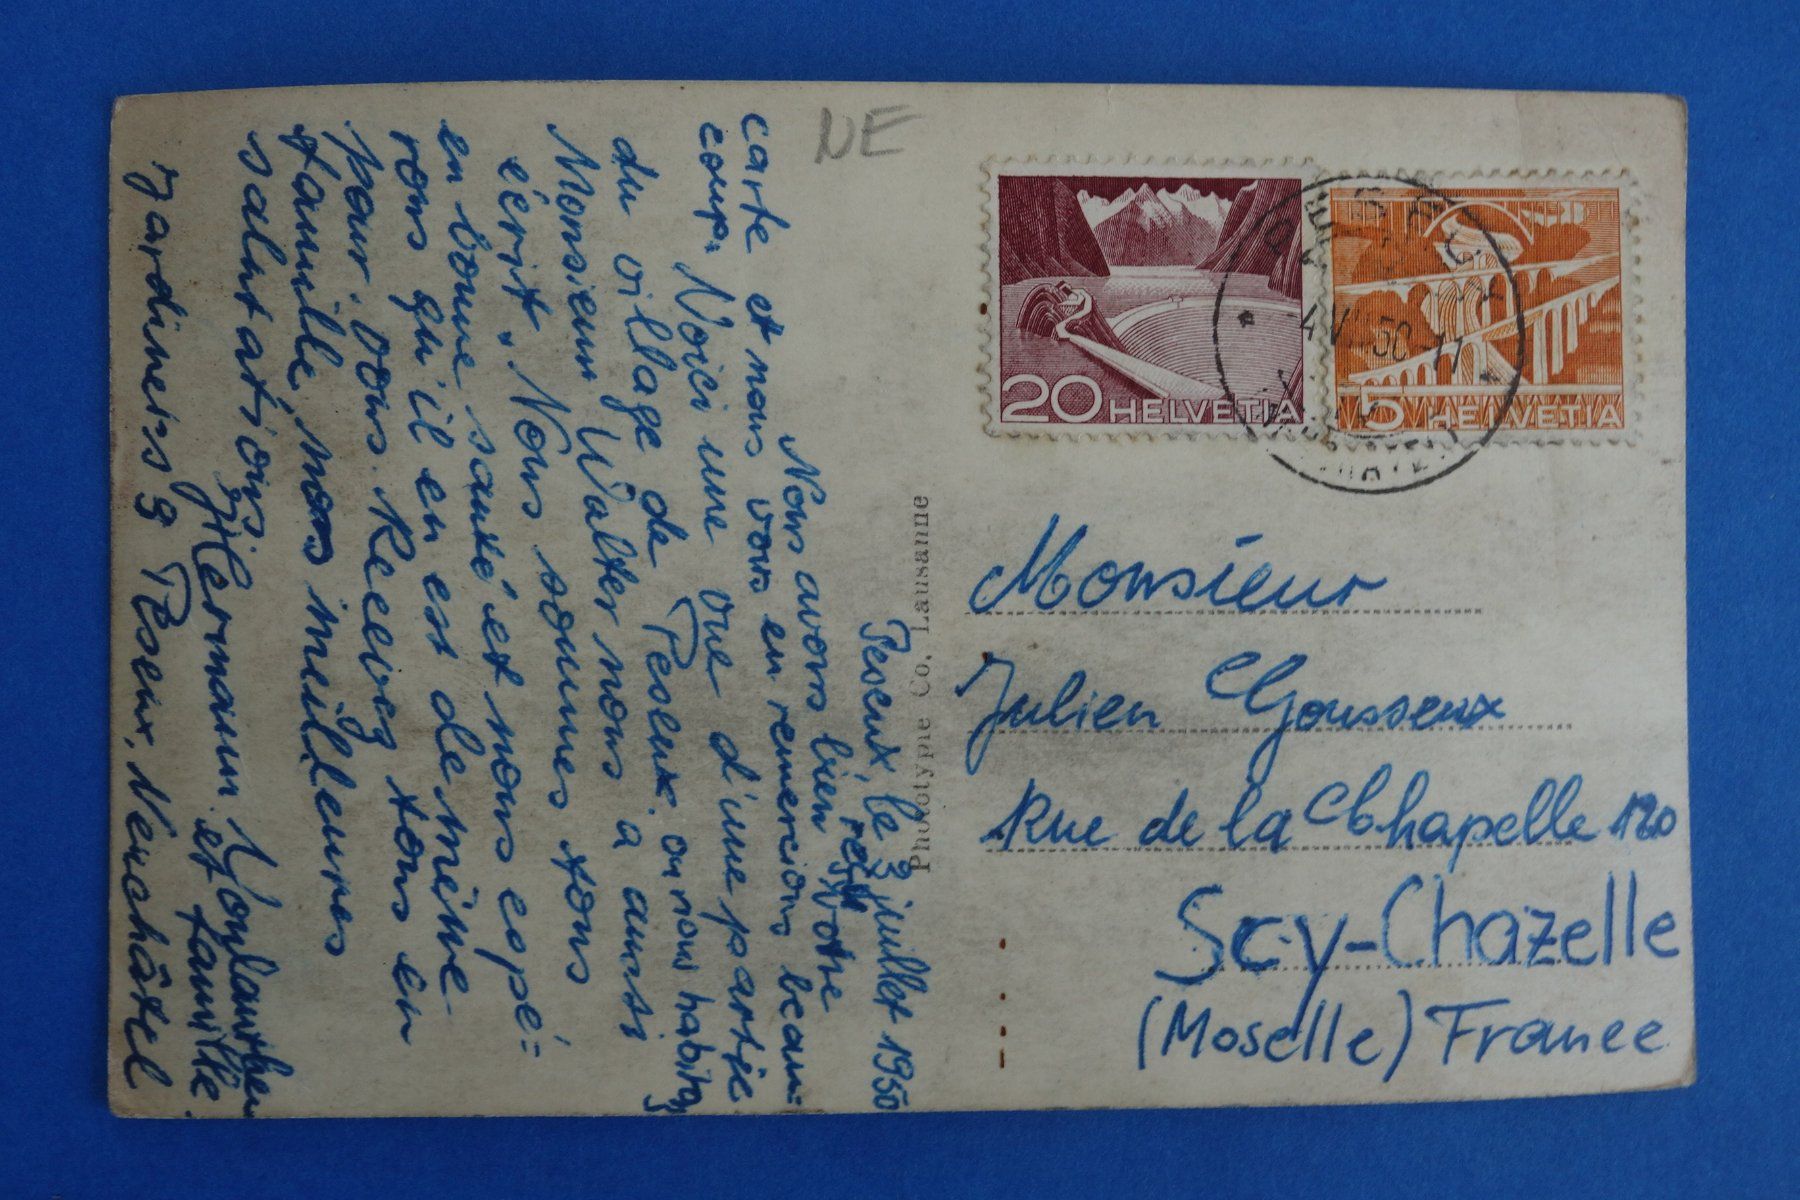 NE
Peseux, le 3 juillet 1950
Nous avons bien reçu votre
carte et nous vous en remercions beau=
coup. Voici une vue d'une partie
du village de Peseux ou nous habitons
Monsieur Walter nous a aussi
écrit. Nous sommes tous
en bonne santé et nous espé=
rons qu'il en est de même
pour vous. Recevez tous en
famille, nos meilleures
salutations
Hermann et famille
Jardiners 9 Peseux, Neuchâtel
Phototypie Co. Lausanne
20 HELVETIA
5 HELVETIA
50-17
Monsieur
Julien Gousseux
Rue de la Chapelle 120
Scy-Chazelle
(Moselle) France